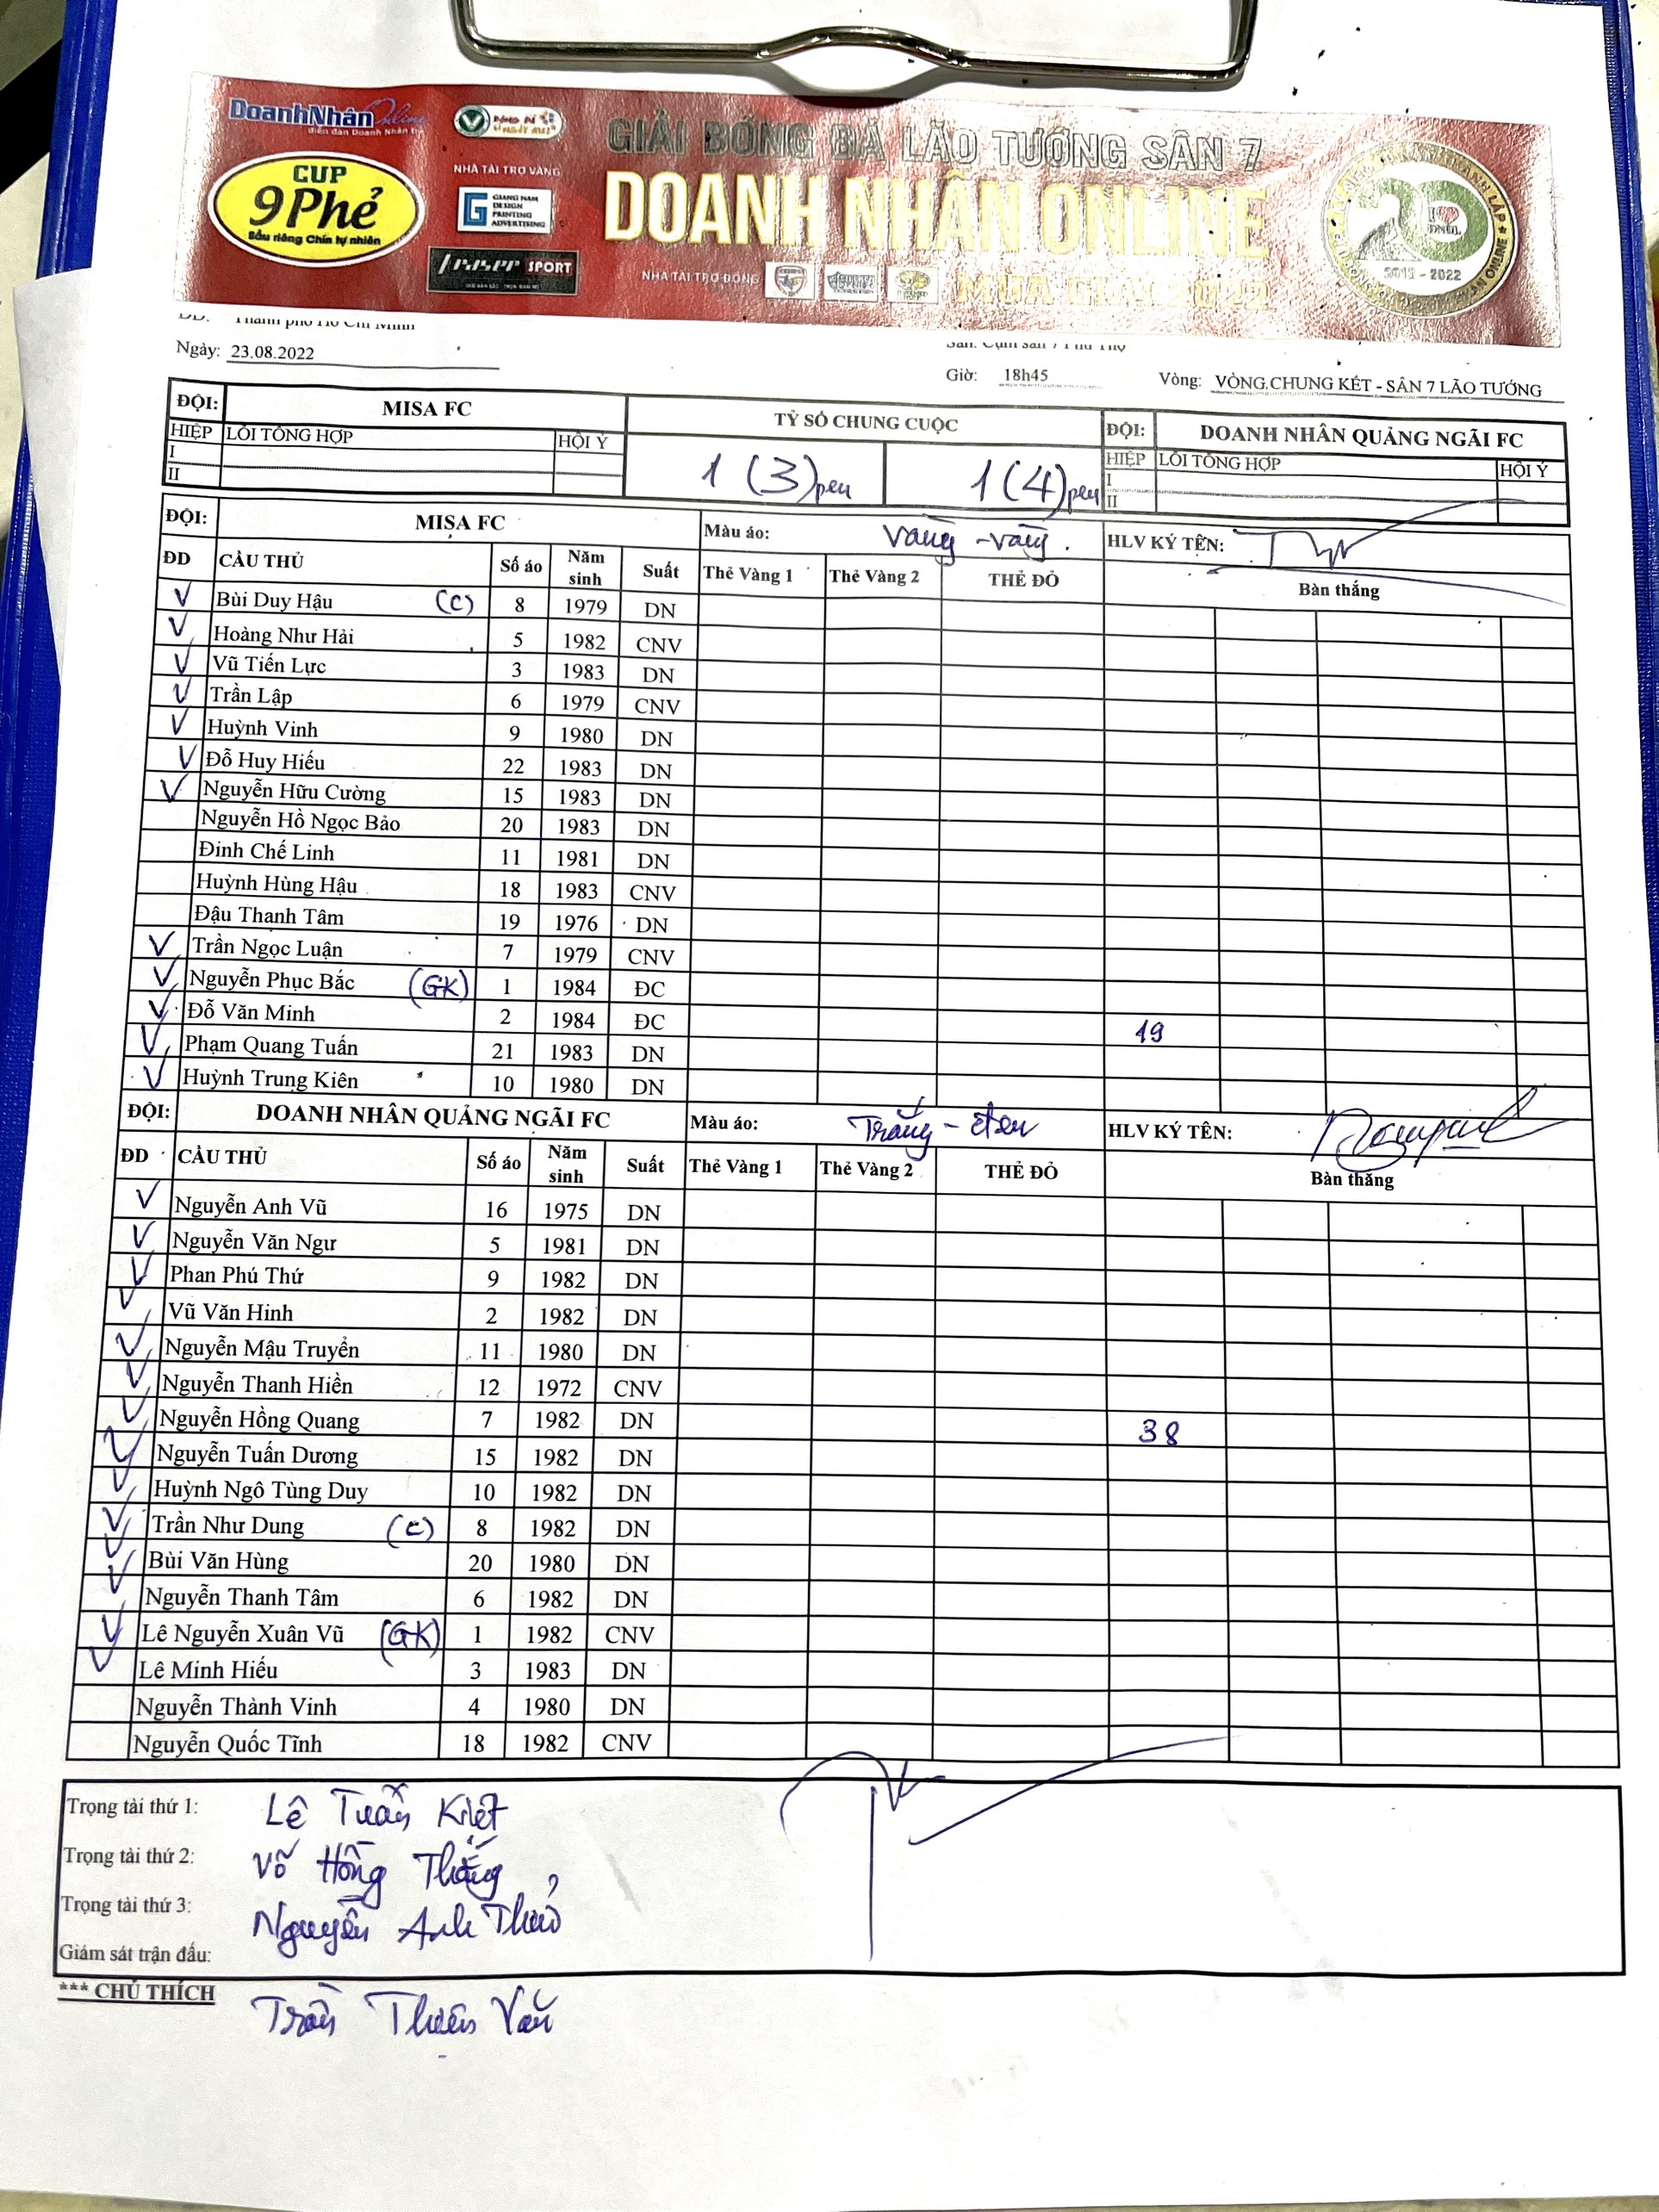 DoanhNhânOnline
diễn đàn Doanh Nhân trẻ
CUP
9Phẻ
Sầu riêng Chín tự nhiên
NHÀ TÀI TRỢ VÀNG
GIANG NAM
DESIGN
PRINTING
ADVERTISING
SPORT
GIẢI BÓNG ĐÁ LÃO TƯỚNG SÂN 7
DOANH NHÂN ONLINE
NHÀ TÀI TRỢ ĐỒNG
MÙA GIẢI 2022
20
DNOL
2012 - 2022
ĐĐ: Thành phố Hồ Chí Minh
Sân: Cụm sân 7 Phú Thọ
Ngày: 23.08.2022
Giờ: 18h45
Vòng: VÒNG.CHUNG KẾT - SÂN 7 LÃO TƯỚNG
ĐỘI: MISA FC TỶ SỐ CHUNG CUỘC ĐỘI: DOANH NHÂN QUẢNG NGÃI FC
HIỆP LỖI TỔNG HỢP HỘI Ý 1 (3) pen 1 (4) pen HIỆP LỖI TỔNG HỢP HỘI Ý
I I
II II
ĐỘI: MISA FC Màu áo: Vàng - vàng. HLV KÝ TÊN:
ĐD CẦU THỦ Số áo Năm sinh Suất Thẻ Vàng 1 Thẻ Vàng 2 THẺ ĐỎ Bàn thắng
V Bùi Duy Hậu (C) 8 1979 DN
V Hoàng Như Hải 5 1982 CNV
V Vũ Tiến Lực 3 1983 DN
V Trần Lập 6 1979 CNV
V Huỳnh Vinh 9 1980 DN
V Đỗ Huy Hiếu 22 1983 DN
V Nguyễn Hữu Cường 15 1983 DN
Nguyễn Hồ Ngọc Bảo 20 1983 DN
Đinh Chế Linh 11 1981 DN
Huỳnh Hùng Hậu 18 1983 CNV
Đậu Thanh Tâm 19 1976 DN
V Trần Ngọc Luận 7 1979 CNV
V Nguyễn Phục Bắc (GK) 1 1984 ĐC
V Đỗ Văn Minh 2 1984 ĐC 19
V Phạm Quang Tuấn 21 1983 DN
V Huỳnh Trung Kiên 10 1980 DN
ĐỘI: DOANH NHÂN QUẢNG NGÃI FC Màu áo: Trắng - đen HLV KÝ TÊN:
ĐD CẦU THỦ Số áo Năm sinh Suất Thẻ Vàng 1 Thẻ Vàng 2 THẺ ĐỎ Bàn thắng
V Nguyễn Anh Vũ 16 1975 DN
V Nguyễn Văn Ngư 5 1981 DN
V Phan Phú Thứ 9 1982 DN
V Vũ Văn Hinh 2 1982 DN
V Nguyễn Mậu Truyển 11 1980 DN
V Nguyễn Thanh Hiền 12 1972 CNV
V Nguyễn Hồng Quang 7 1982 DN 38
V Nguyễn Tuấn Dương 15 1982 DN
V Huỳnh Ngô Tùng Duy 10 1982 DN
V Trần Như Dung (C) 8 1982 DN
V Bùi Văn Hùng 20 1980 DN
V Nguyễn Thanh Tâm 6 1982 DN
V Lê Nguyễn Xuân Vũ (GK) 1 1982 CNV
V Lê Minh Hiếu 3 1983 DN
Nguyễn Thành Vinh 4 1980 DN
Nguyễn Quốc Tĩnh 18 1982 CNV
Trọng tài thứ 1: Lê Tuấn Kiệt
Trọng tài thứ 2: Võ Hồng Thắng
Trọng tài thứ 3: Nguyễn Anh Thảo
Giám sát trận đấu:
*** CHÚ THÍCH
Trần Thiện Văn